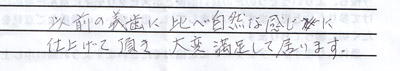 以前の義歯に比べ自然な感じに
仕上げて頂き 大変満足して居ります。